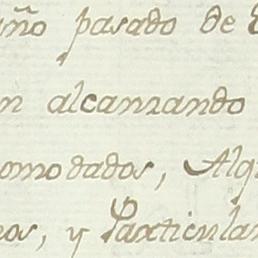 año pasado de
n alcanzando
omodados, Alg
os, y Particular